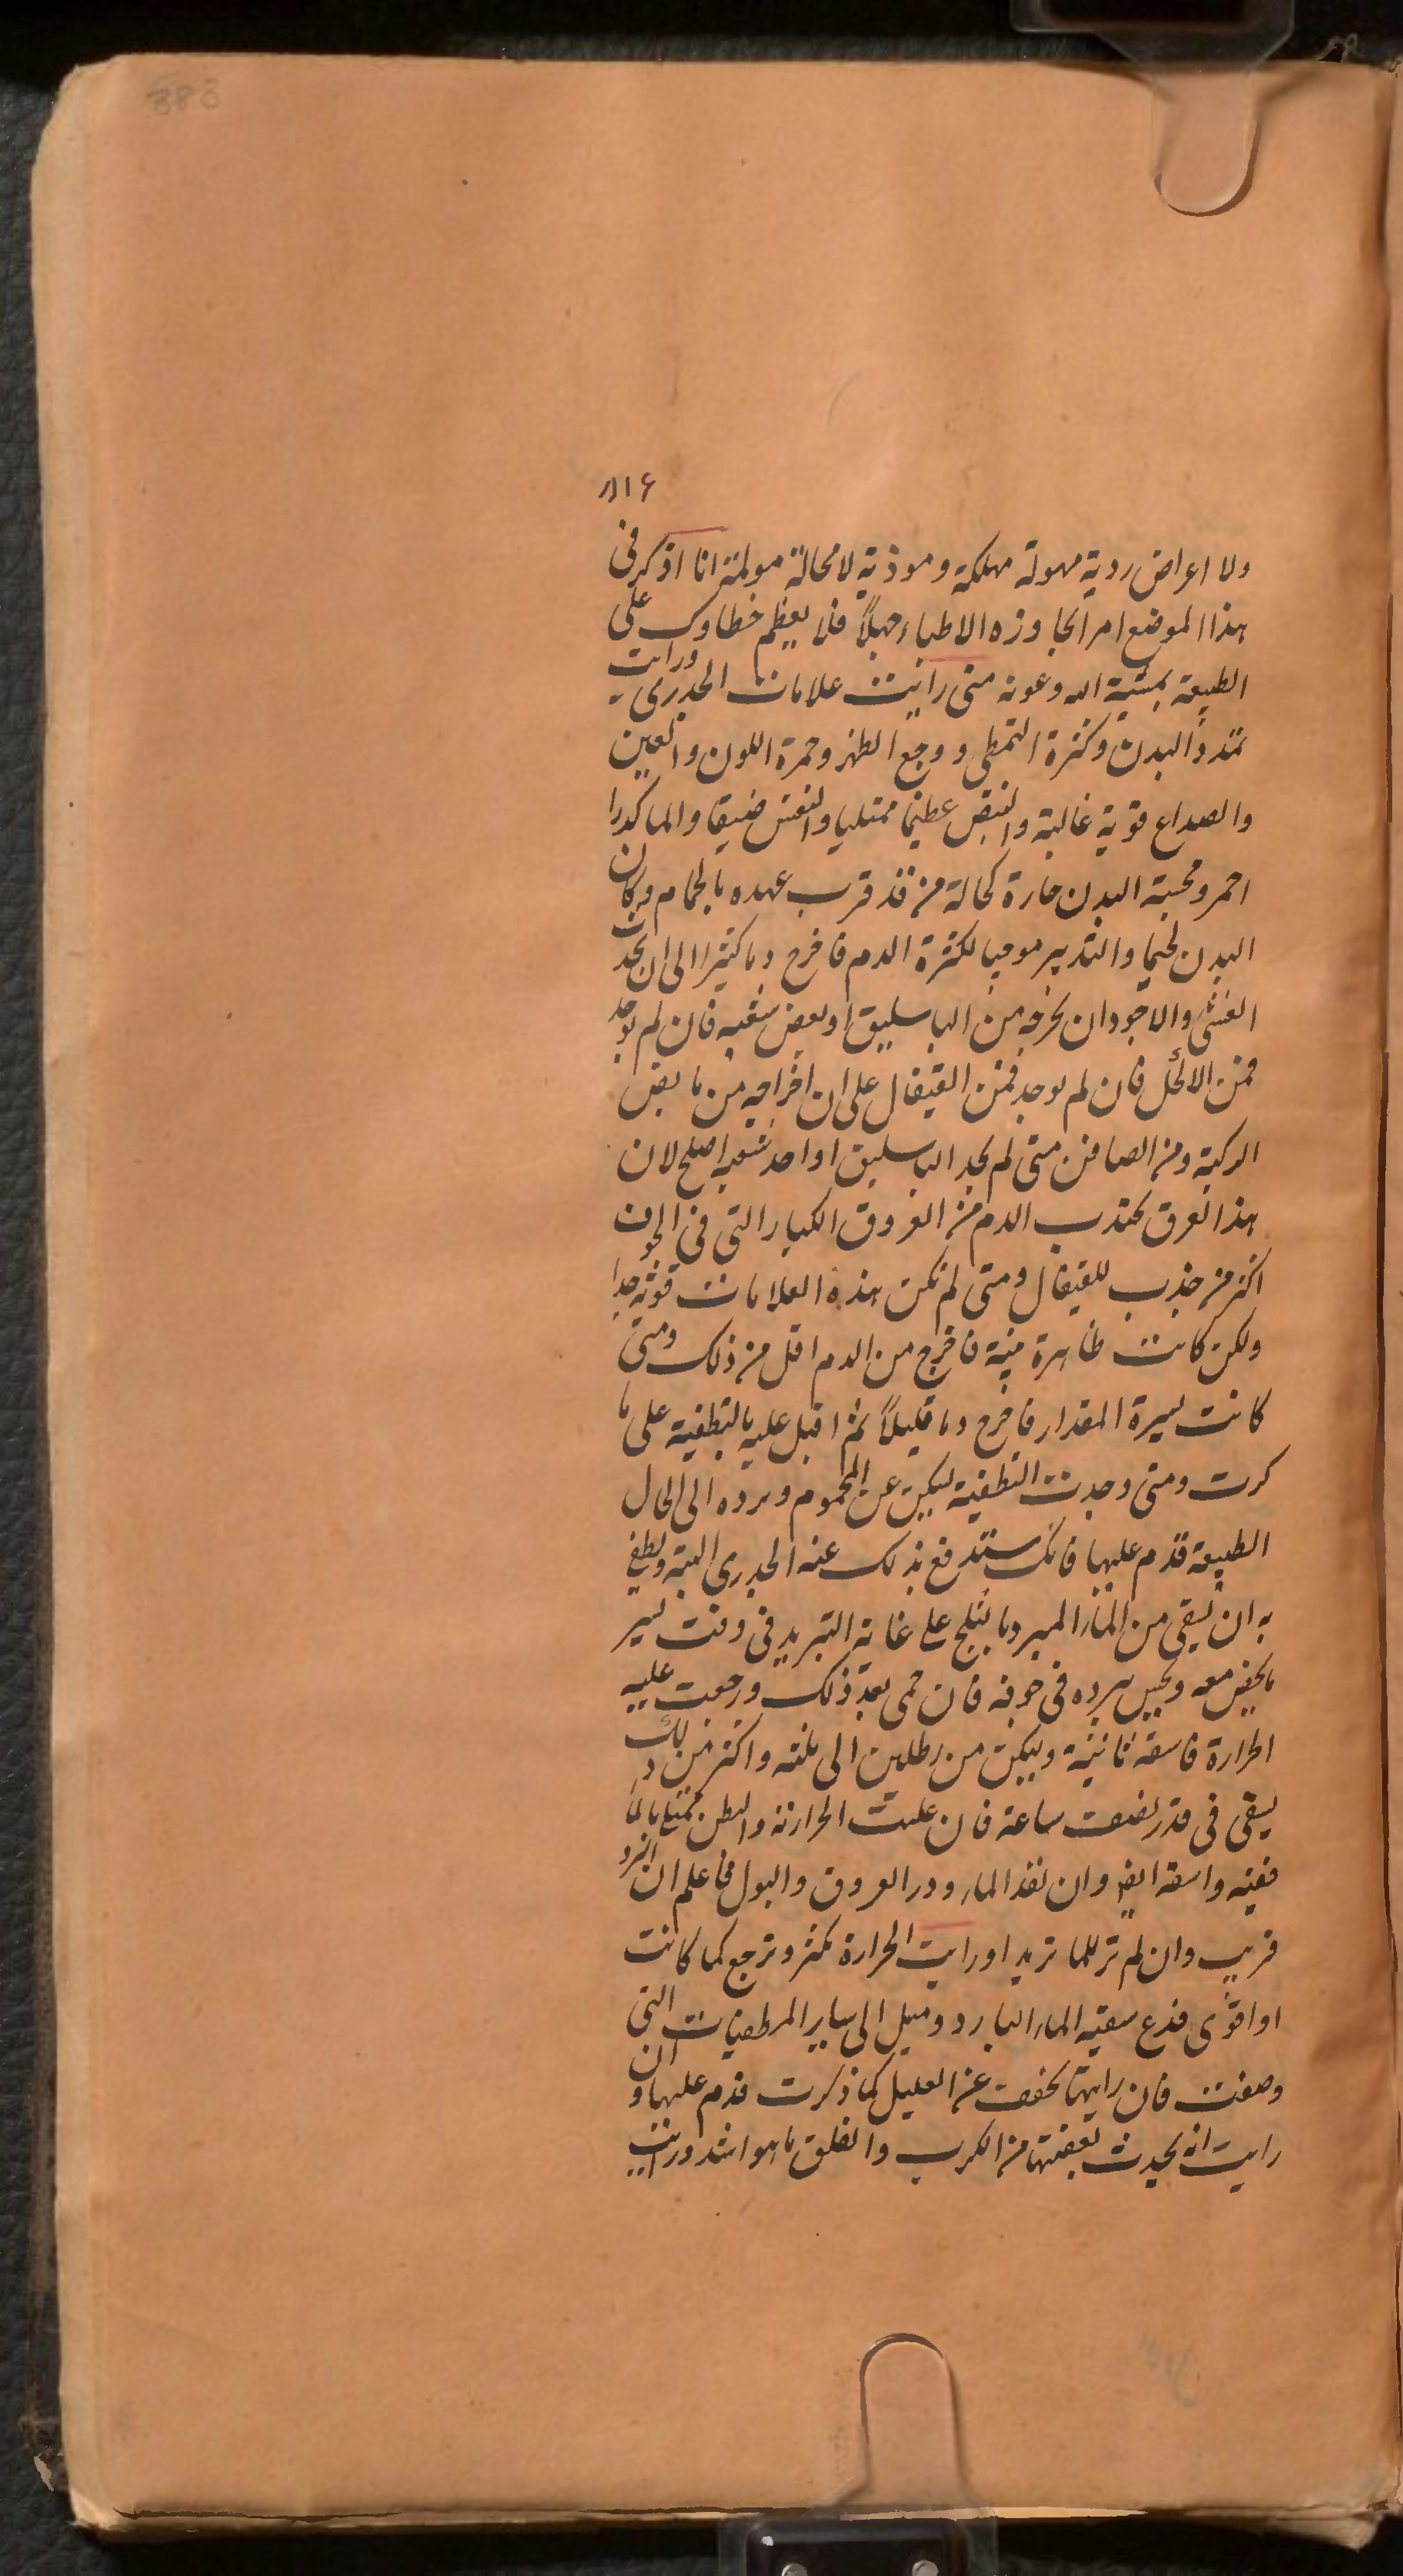 383
۸۱۶
ولا اعراض ردية مهولة مهلكة وموذية لا محالة مولمة انا اذكر فى
هذا الموضع امرا تجاوزه الاطباء جهلاً فلا يعظم خطاوك على
الطبيعة بمشية الله وعونه متى رايت علامات الجدرى ورايت
تمدد البدن وكثرة التمطى ووجع الظهر وحمرة اللون والعين
والصداع قوية غالبة والنبض عظيما ممتليا والنفس ضيقا والما كدرا
احمر ومجسة البدن حارة كحالة من قد قرب عهده بالحمام وكان
البدن لحيما والتدبير موجبا لكثرة الدم فاخرج دما كثيرا الى ان يحدث
الغشى والاجود ان تخرجه من الباسليق او بعض شعبه فان لم يوجد
فمن الاكحل فان لم يوجد فمن القيفال على ان اخراجه من مابض
الركبة ومن الصافن متى لم تجد الباسليق او احد شعبه اصلح لان
هذا العرق يجتذب الدم من العروق الكبار التى فى الجوف
اكثر من جذب للقيفال ومتى لم تكن هذه العلامات قوية جدا
ولكن كانت ظاهرة بينة فاخرج من الدم اقل من ذلك ومتى
كانت يسيرة المقدار فاخرج دما قليلاً ثم اقبل عليه بالتطفية على ما
كرت ومتى وجدت التطفية ليكن عن المحموم ويرده الى الحال
الطبيعة قدم عليها فانك ستدفع بذلك عنه الجدرى البتة ويطفى
به ان يسقى من الماء المبرد بالثلج على غاية التبريد فى وقت يسير
ما يحفر معه ويحس ببرده فى جوفه فان حمى بعد ذلك ورجعت عليه
الحرارة فاسقه ثانية وليكن من رطلين الى ثلثه واكثر من ذلك
يسقى فى قدر نصف ساعة فان غلبت الحرارة والبطن ممتلى بالماء
فقيه واسقه ايضا وان نفذ الماء ودر العروق والبول فاعلم ان البرو
قريب وان لم تر للما تريد او رايت الحرارة تكثر وترجع كما كانت
او اقوى فدع سقيه الماء البارد وميل الى ساير المطفيات التى
وصفت فان رايتها تخفف عن العليل كما ذكرت فدم عليها وان
رايت انه يحدث بعقبها من الكرب والقلق ما هو اشد ورايت